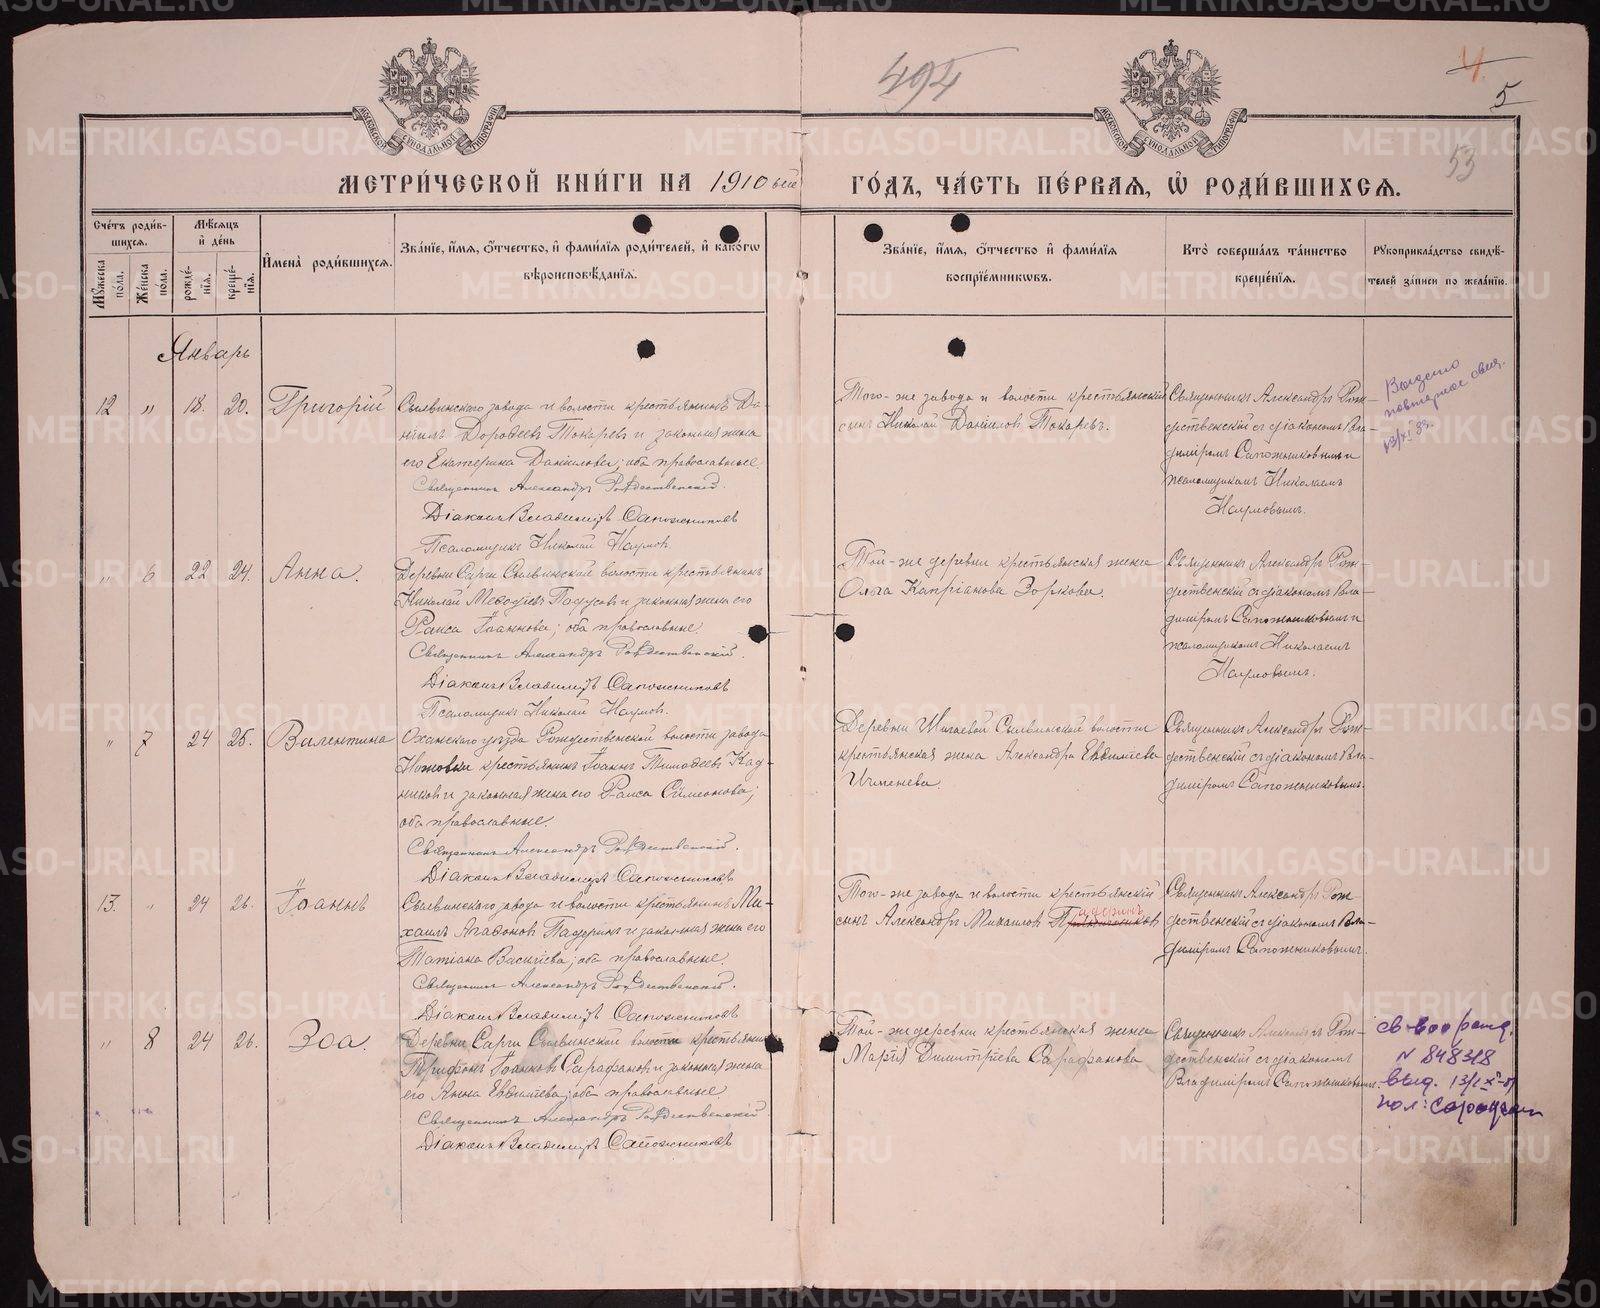 494
4
5
53
МОСКОВСКОЙ СѴНОДАЛЬНОЙ ТИПОГРАФІИ
МОСКОВСКОЙ СѴНОДАЛЬНОЙ ТИПОГРАФІИ
МЕТРИ́ЧЕСКОЙ КНИ́ГИ НА 1910 ый ГО́ДЪ, ЧА́СТЬ ПЕ́РВАЯ, Ѡ҆ РОДИ́ВШИХСЯ.
Сче́тъ роди́в-
шихся.
Мꙋжеска по́ла.
Же́нска по́ла.
Мѣ́сяцъ
и҆ де́нь
рожде́-
нїя.
креще́-
нїя.
И҆мена̀ роди́вшихся.
Зва́нїе, и҆́мя, ѻ҆́тчество, и҆ фами́лїя роди́телей, и҆ како́гѡ
вѣроисповѣ́данїя.
Зва́нїе, и҆́мя, ѻ҆́тчество и҆ фами́лїя
воспрїе́мникѡвъ.
Кто̀ соверша́лъ та́инство
креще́нїя.
Рꙋкоприкла́дство свидѣ́-
телей за́писи по жела́нїю.
Январь
12 „ 18. 20. Григорій
Сылвинского завода и волости крестьянинъ Да-
ніилъ Дороѳеевъ Токаревъ и законная жена
его Екатерина Даніилова; оба православные.
Священникъ Александръ Рождественскій.
Діаконъ Владимиръ Сапожниковъ
Псаломщикъ Николай Наумов.
Того-же завода и волости крестьянскій
сынъ Николай Даніиловъ Токаревъ.
Священникъ Александръ Рож-
дественскій съ діакономъ Вла-
диміромъ Сапожниковымъ и
псаломщикомъ Николаемъ
Наумовымъ.
Выдано
повторное свид.
„ 6 22 24. Анна.
Деревни Сарги Сылвинской волости крестьянинъ
Николай Меѳодіевъ и законная жена его
Раиса Іоаннова; оба православные.
Священникъ Александръ Рождественскій.
Діаконъ Владимиръ Сапожниковъ
Псаломщикъ Николай Наумов.
Той-же деревни крестьянская жена
Ольга Капріанова Зоркова.
Священникъ Александръ Рож-
дественскій съ діакономъ Вла-
диміромъ Сапожниковымъ и
псаломщикомъ Николаемъ
Наумовымъ.
„ 7 24 25. Валентина
Оханского уѣзда Рождественской волости завода
Ножовки крестьянинъ Іоаннъ Тимоѳеевъ Кад-
никовъ и законная жена его Раиса Сімеонова;
оба православные.
Священникъ Александръ Рождественскій.
Діаконъ Владимиръ Сапожниковъ
Деревни Шигаевой Сылвинской волости
крестьянская жена Александра Евѳиміева
Ичменева.
Священникъ Александръ Рож-
дественскій съ діакономъ Вла-
диміромъ Сапожниковымъ.
13. „ 24 26. Іоаннъ
Сылвинского завода и волости крестьянинъ Ми-
хаилъ Агаѳоновъ Падеринъ и законная жена его
Татіана Василіева; оба православные.
Священникъ Александръ Рождественскій.
Діаконъ Владимиръ Сапожниковъ
Того-же завода и волости крестьянскій
сынъ Александръ Михаиловъ Падеринъ
Священникъ Александръ Рож-
дественскій съ діакономъ Вла-
диміромъ Сапожниковымъ.
„ 8 24 26. Зоа.
Деревни Сарги Сылвинской волости крестьянинъ
Трифонъ Іоанновъ Сарафановъ и законная жена
его Анна Евѳиміева; оба православные.
Священникъ Александръ Рождественскій
Діаконъ Владимиръ Сапожниковъ
Той-же деревни крестьянская жена
Марія Димитріева Сарафанова
Священникъ Александръ Рож-
дественскій съ діакономъ
Владиміромъ Сапожниковымъ.
св-во о рожд.
N 848318
выд.
METRIKI.GASO-URAL.RU